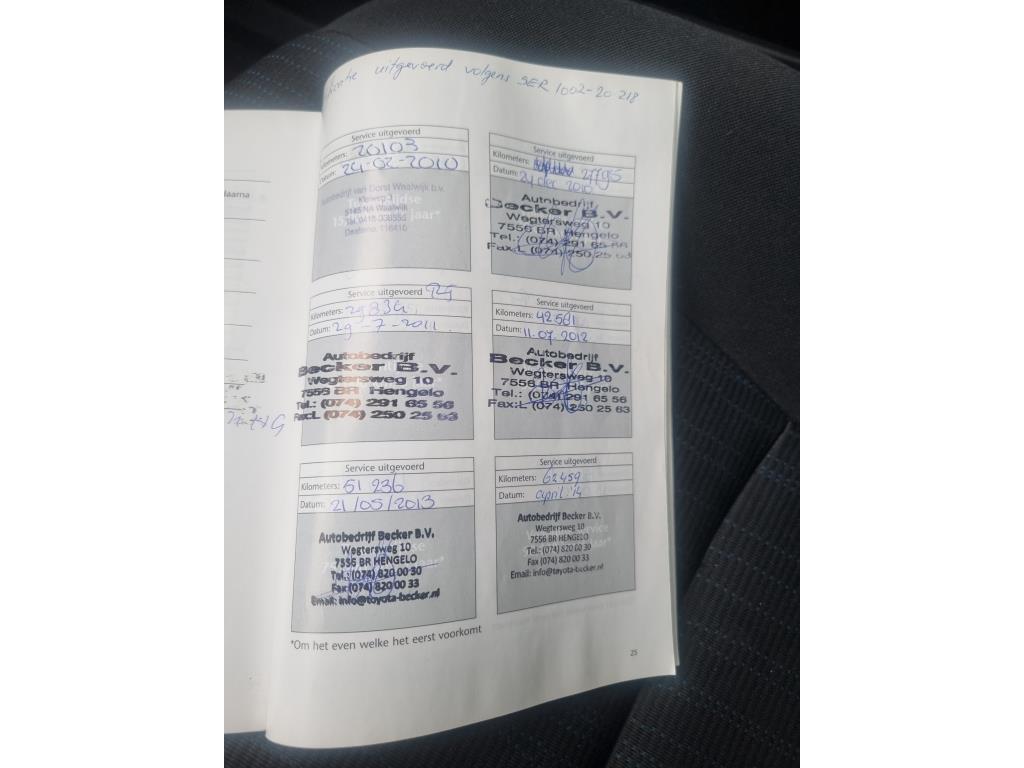 uitgevoerd volgens SER 1002-20 218
Service uitgevoerd
Kilometers: 20103
Datum: 24-02-2010
Autobedrijf van Dorst Waalwijk b.v.
5145 NA Waalwijk
Service uitgevoerd
Kilometers: 27795
Datum: 24 dec 2010
Autobedrijf
Becker B.V.
Wegtersweg 10
7556 BR Hengelo
Tel.: (074) 291 65 56
Fax: (074) 250 25 63
Service uitgevoerd
Kilometers: 29834
Datum: 29-7-2011
Autobedrijf
Becker B.V.
Wegtersweg 10
7556 BR Hengelo
Tel.: (074) 291 65 56
Fax: (074) 250 25 63
Service uitgevoerd
Kilometers: 42561
Datum: 11.07.2012
Autobedrijf
Becker B.V.
Wegtersweg 10
7556 BR Hengelo
Tel.: (074) 291 65 56
Fax: (074) 250 25 63
Service uitgevoerd
Kilometers: 51 236
Datum: 21/05/2013
Autobedrijf Becker B.V.
Wegtersweg 10
7556 BR HENGELO
Tel.: (074) 820 00 30
Fax (074) 820 00 33
Email: info@toyota-becker.nl
Service uitgevoerd
Kilometers: 62459
Datum: april '14
Autobedrijf Becker B.V.
Wegtersweg 10
7556 BR HENGELO
Tel.: (074) 820 00 30
Fax (074) 820 00 33
Email: info@toyota-becker.nl
*Om het even welke het eerst voorkomt
25